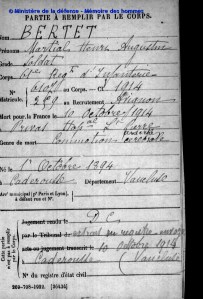 © Ministère de la défense - Mémoire des hommes
PARTIE À REMPLIR PAR LE CORPS.
Nom BERTET
Prénoms Martial Henri Augustin
Grade Soldat
Corps 61e Régt d'Infanterie
N° 6120 au Corps. - Cl. 1914
Matricule. 229 au Recrutement Avignon
Mort pour la France le 10 octobre 1914
à Privas
Genre de mort Commotion cérébrale
Né le 1 Octobre 1894
à Caderousse Département Vaucluse
Arr municipal (p Paris et Lyon),
à défaut rue et N°.
Jugement rendu le D C
par le Tribunal de
acte ou jugement transcrit le 10 octobre 1914
à Caderousse (Vaucluse)
N° du registre d'état civil